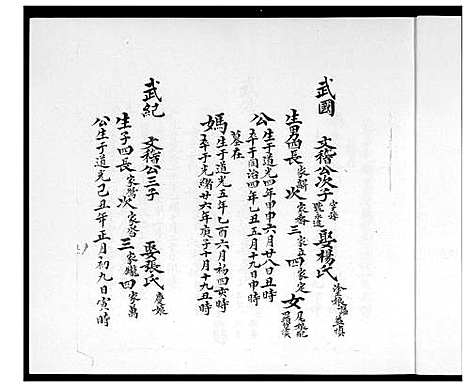 武國 文稽公次子 娶楊氏
生男四長家 次家 三家立四家定 女
公生于道光四年甲申六月廿八日丑時
卒于同治四年乙丑五月十九日申時
墓在
媽生于道光五年乙酉六月初四亥時
卒于光緒廿六年庚子十月十九丑時
武紀 文稽公三子 娶張氏
生子四長家 次家 三家 四家萬
公生于道光己丑年正月初九日寅時